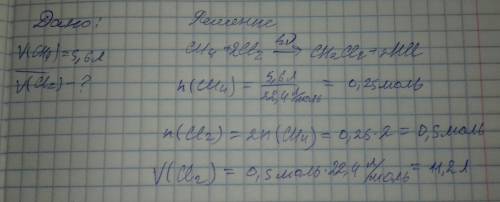 Дано:
Решение
V(CH4)=5,6л
V(Cl2)-?
CH4+2Cl2 → CH2Cl2+2HCl
n(CH4) = 5,6л / 22,4 л/моль = 0,25моль
n(Cl2) = 2n(CH4) = 0,25·2 = 0,5моль
V(Cl2) = 0,5моль·22,4 л/моль = 11,2л